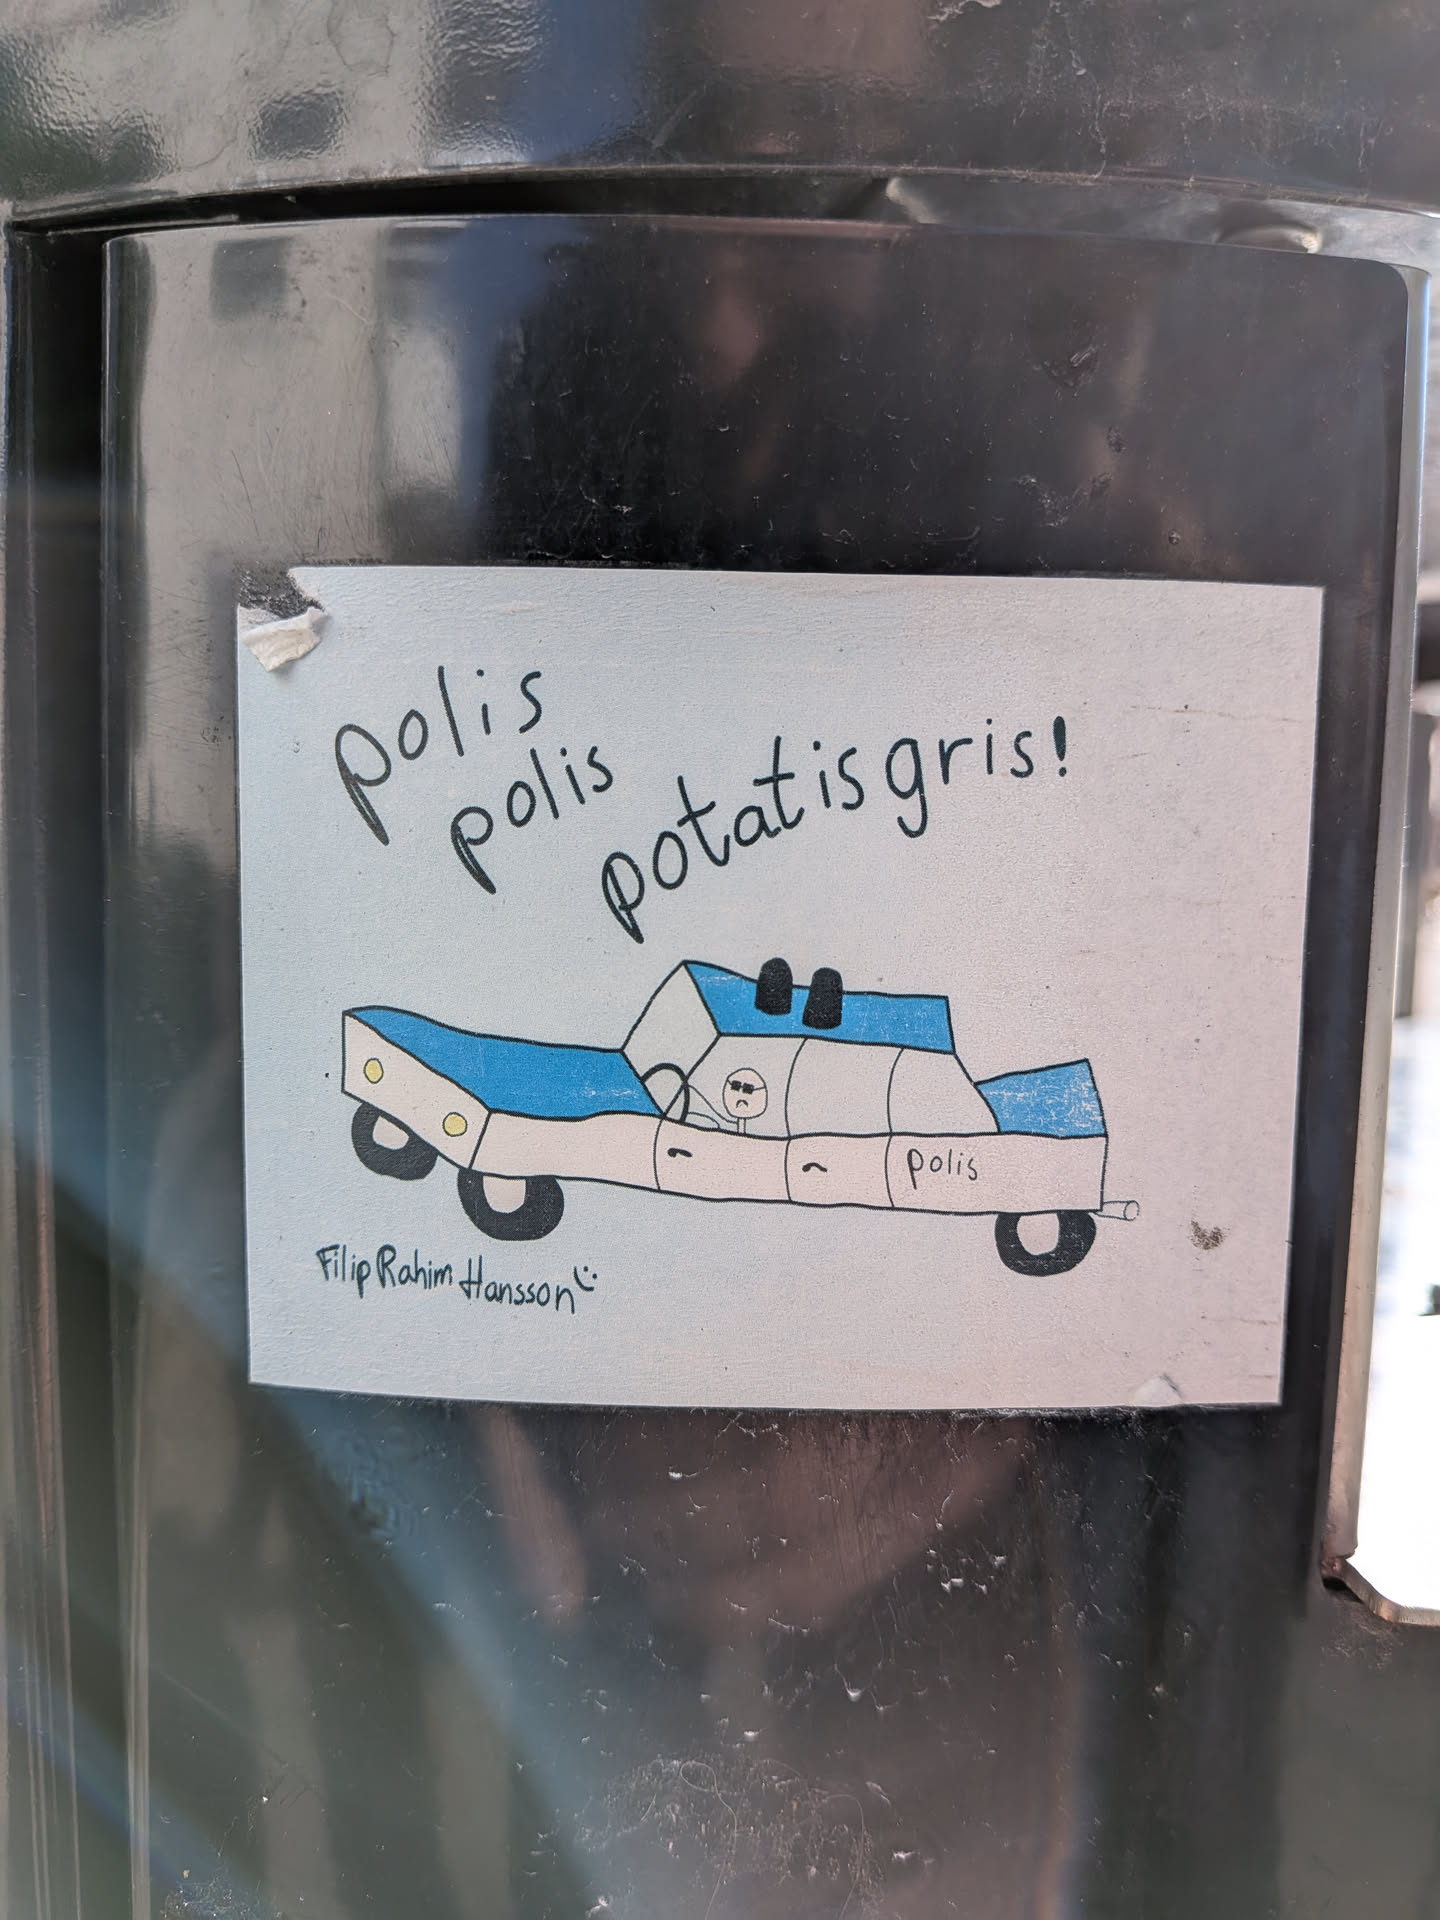 polis
polis
potatisgris!
polis
Filip Rahim Hansson